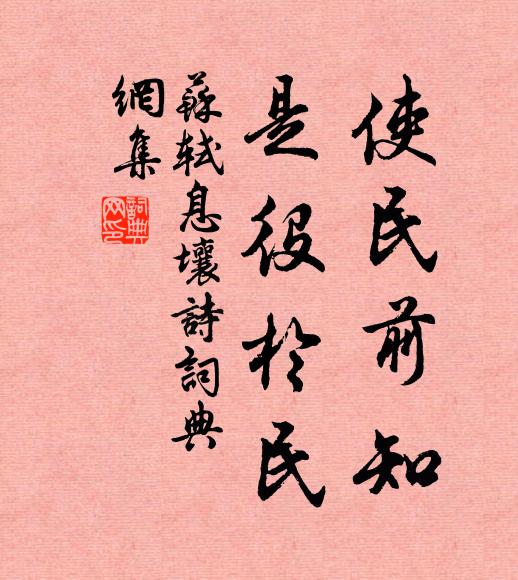 使民前知
是役於民
蘇軾息壤詩詞典
網集
詞典
网印